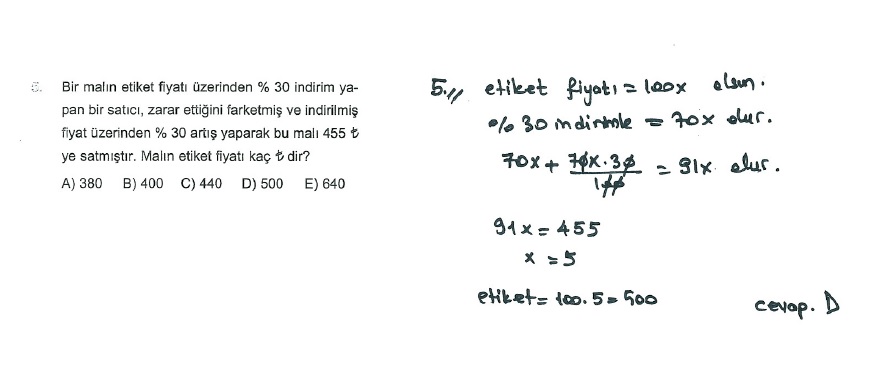 5. Bir malın etiket fiyatı üzerinden % 30 indirim ya-
pan bir satıcı, zarar ettiğini farketmiş ve indirilmiş
fiyat üzerinden % 30 artış yaparak bu malı 455 ₺
ye satmıştır. Malın etiket fiyatı kaç ₺ dir?
A) 380 B) 400 C) 440 D) 500 E) 640
5.// etiket fiyatı = 100x olsun.
% 30 indirimle = 70x olur.
70x + 70x.30 / 100 = 91x olur.
91x = 455
x = 5
etiket = 100.5 = 500
cevap. D